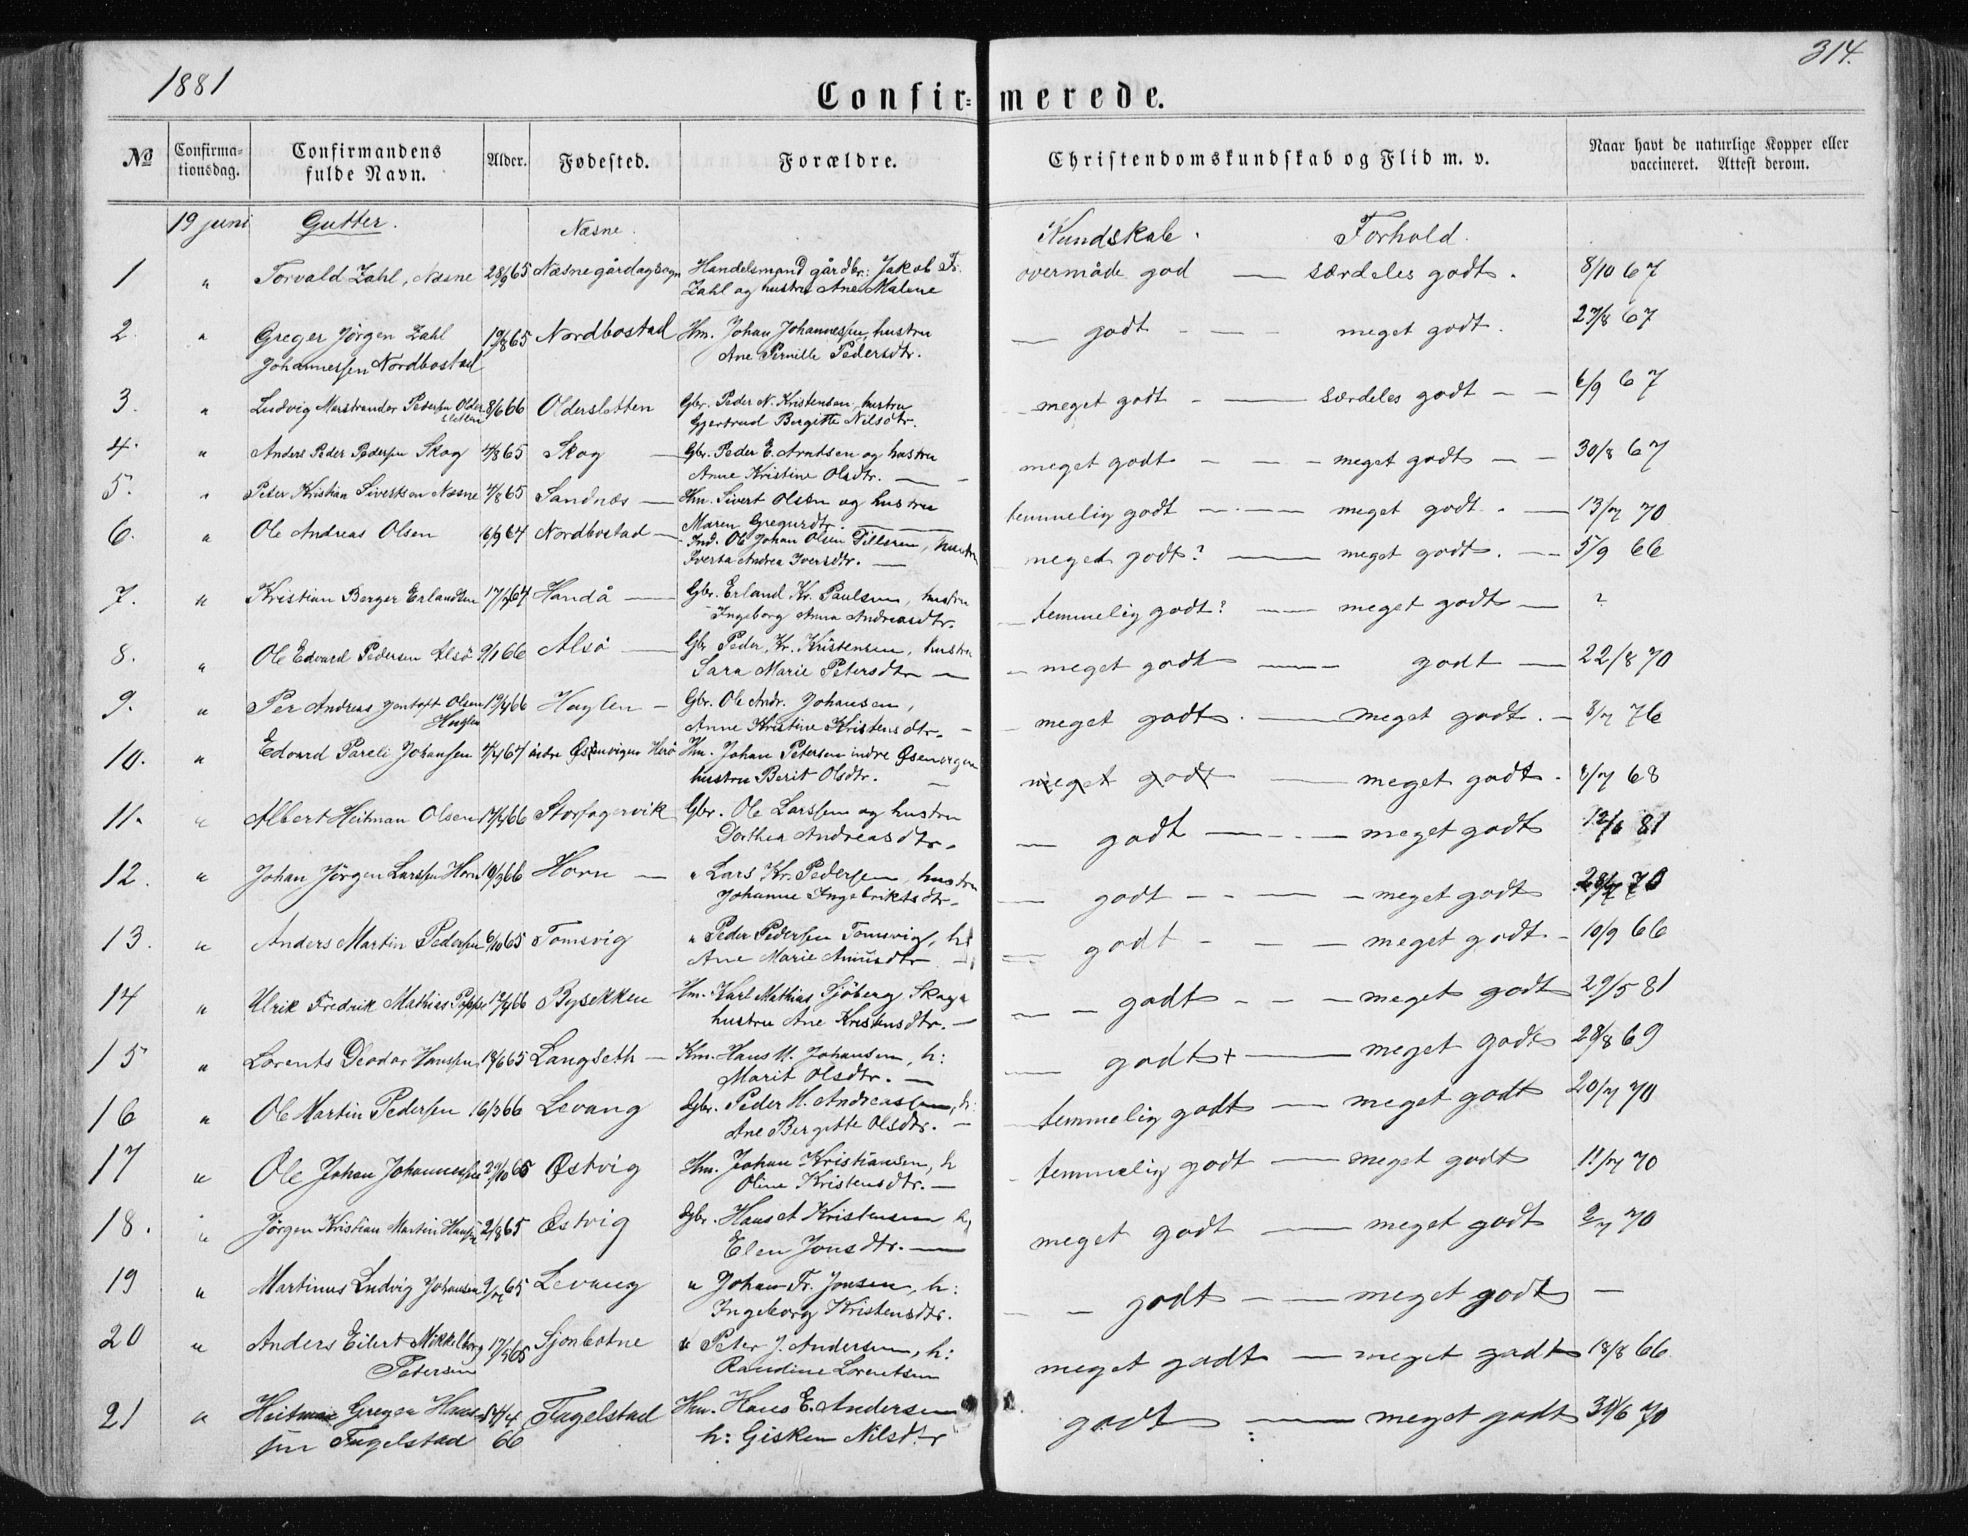 1881
314.
Confir= merede.
No Confirma-tionsdag. Confirmandens fulde Navn. Alder. Fødested. Forældre. Christendomskundskab og Flid m. v. Naar havt de naturlige Kopper eller vaccineret. Attest derom.
19 juni Gutter. Næsne. Kundskab. Forhold.
1 " Torvald Zahl, Næsne 28/9 65 Næsne gård og sogn Handelsmand gårdbr: Jakob Fr. overmåde god — særdeles godt. 8/10 67
Zahl og hustru Ane Malene
2. " Greger Jörgen Zahl 19/8 65 Nordbostad Hm. Johan Johannessen, hustru — godt - - - meget godt. 27/8 67
Johannessen Nordbostad Ane Pernille Pedersdtr.
3. " Ludvig Marstrander Pedersen Older 8/6 66 Oldersletten Gbr. Peder N. Kristensen, hustru - meget godt - — særdeles godt - - 6/9 67
sletten Gjertrud Bergitte Nilsdtr.
4. " Anders Peder Pedersen Skog 4/8 65 Skog — Gbr. Peder E. Arntsen og hustru meget godt - - - meget godt - - 30/8 67
Anne Kristine Olsdtr. —
5. " Peter Kristian Sivertsen Næsne 4/8 65 Sandnæs — Hm. Sivert Olsen og hustru temmelig godt - - - meget godt. - 13/7 70
Maren Gregersdtr. —
6. " Ole Andreas Olsen 6/9 64 Nordbostad — Ind. Ole Johan Olsen Tillrem, hustru meget godt? — meget godt. — 5/9 66
Iverta Andrea Iversdtr. —
7. " Kristian Berger Erlandsen 17/7 64 Handå — Gbr. Erland Kr. Paulsen, hustru — temmelig godt? — meget godt — ?
Ingeborg Anna Andreasdtr.
8. " Ole Edvard Pedersen Alsö 9/1 66 Alsö — Gbr Peder Kr. Kristensen, hustru - meget godt — godt — 22/8 70
Sara Marie Petersdtr —
9. " Per Andreas Gentoft Olsen 19/4 66 Haglen — Gbr. Ole Andr. Johansen, - meget godt. — meget godt. - 8/7 76
Haglen Anne Kristine Kristensdtr. -
10. " Edvard Pareli Johansen 4/4 64 indre Østenvigen Herö Hm. Johan Petersen indre Øsenvigen meget godt — meget godt. 8/7 68
hustru Berit Olsdtr. —
11. " Albert Heitman Olsen 17/4 66 Storfagervik Gbr. Ole Larssen og hustru — godt — - - meget godt 12/6 81
Dorthea Andreasdtr.
12. " Johan Jörgen Larssen Horn 19/3 66 Horn — " Lars Kr. Pedersen, hustru — godt - - - meget godt 28/7 70
Johanne Ingebriktsdtr.
13. " Anders Martin Pedersen 6/10 65 Tomsvig " Peder Pedersen Tomsvig, h: — godt - - - meget godt - 10/9 66
Ane Marie Amundsdtr -
14 " Ulrik Fredrik Mathias 12/4 66 Bysekken Hm. Karl Mathias Sjöberg Skog — - godt - - - meget godt 29/5 81
hustru Ane Kristensdtr. —
15 " Lorents Deodor Hanssen 18/6 65 Langseth — Km. Hans M. Johansen, h: — godt + — meget godt 28/8 69
Marit Olsdtr. —
16 " Ole Martin Pedersen 16/3 66 Levang Gbr. Peder H. Andreassen, h: — temmelig godt — meget godt 20/7 70
Ane Bergitte Olsdtr. —
17 " Ole Johan Johannessen 29/10 65 Østvig Hm. Johan Kristiansen, h - temmelig godt — meget godt 11/7 70
Oline Kristensdtr. —
18. " Jörgen Kristian Martin Hanssen 2/8 65 Østvig Gbr. Hans A Kristensen h: meget godt — meget godt 2/7 70
Elen Jonsdtr. —
19 " Martinus Ludvig Johansen 9/7 65 Levang " Johan Fr. Jonsen, h: — - godt - - meget godt —
Ingeborg Kristensdtr.
20 " Anders Eilert Mikkelborg 17/5 65 Sjonbotne " Peter J. Andersen, h: meget godt — meget godt 18/8 66
Petersen Randine Lorentsen
21 " Heitman Greger Hans- 14/4 Fugelstad Hm. Hans E. Andersen godt — meget godt 30/6 70
sen Fugelstad 66 h: Gisken Nilsdtr